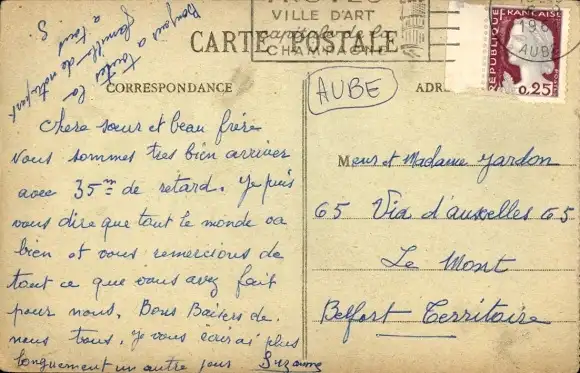 TROYES
VILLE D'ART
capitale de la
CHAMPAGNE
CARTE POSTALE
RÉPUBLIQUE FRANÇAISE
0,25
AUBE
Bonjour a toutes la
famille de notre part
a tous S.
CORRESPONDANCE
AUBE
ADR
Chere sœur et beau frére
Vous sommes tres bien arriver
avec 35 m de retard. Je puis
vous dire que tout le monde va
bien et vous remercions de
tout ce que vous avez fait
pour nous. Bons Baisers de
nous tous. je vous écirai plus
longuement un autre jour Suzanne
Meur et Madame Jardon
65 Via d'auxelles 65
Le Mont
Belfort Territoire